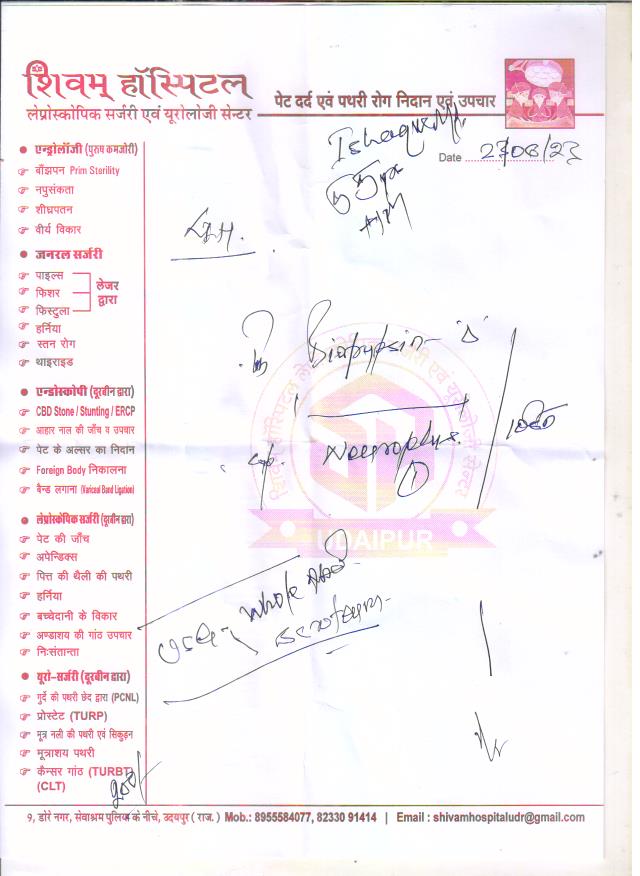 शिवम् हॉस्पिटल
लेप्रोस्कोपिक सर्जरी एवं यूरोलोजी सेन्टर
पेट दर्द एवं पथरी रोग निदान एवं उपचार
Date
एन्ड्रोलॉजी (पुरुष कमजोरी)
बाँझपन Prim Sterility
नपुसंकता
शीघ्रपतन
वीर्य विकार
जनरल सर्जरी
पाइल्स
फिशर
फिस्टुला
लेजर
द्वारा
हर्निया
स्तन रोग
थाइराइड
एण्डोस्कोपी (दूरबीन द्वारा)
CBD Stone / Stunting / ERCP
आहार नाल की जाँच व उपचार
पेट के अल्सर का निदान
Foreign Body निकालना
बैन्ड लगाना (Variceal Band Ligation)
लेप्रोस्कोपिक सर्जरी (दूरबीन द्वारा)
पेट की जाँच
अपेन्डिक्स
पित्त की थैली की पथरी
हर्निया
बच्चेदानी के विकार
अण्डाशय की गांठ उपचार
निःसंतान्ता
यूरो-सर्जरी (दूरबीन द्वारा)
गुर्दे की पथरी छेद द्वारा (PCNL)
प्रोस्टेट (TURP)
मूत्र नली की पथरी एवं सिकुड़न
मूत्राशय पथरी
कैन्सर गांठ (TURBT)
(CLT)
cap. Neuroplus
1
whole
UDAIPUR
9, डोरे नगर, सेवाश्रम पुलिया के नीचे, उदयपुर ( राज. ) Mob.: 8955584077, 82330 91414 | Email : shivamhospitaludr@gmail.com